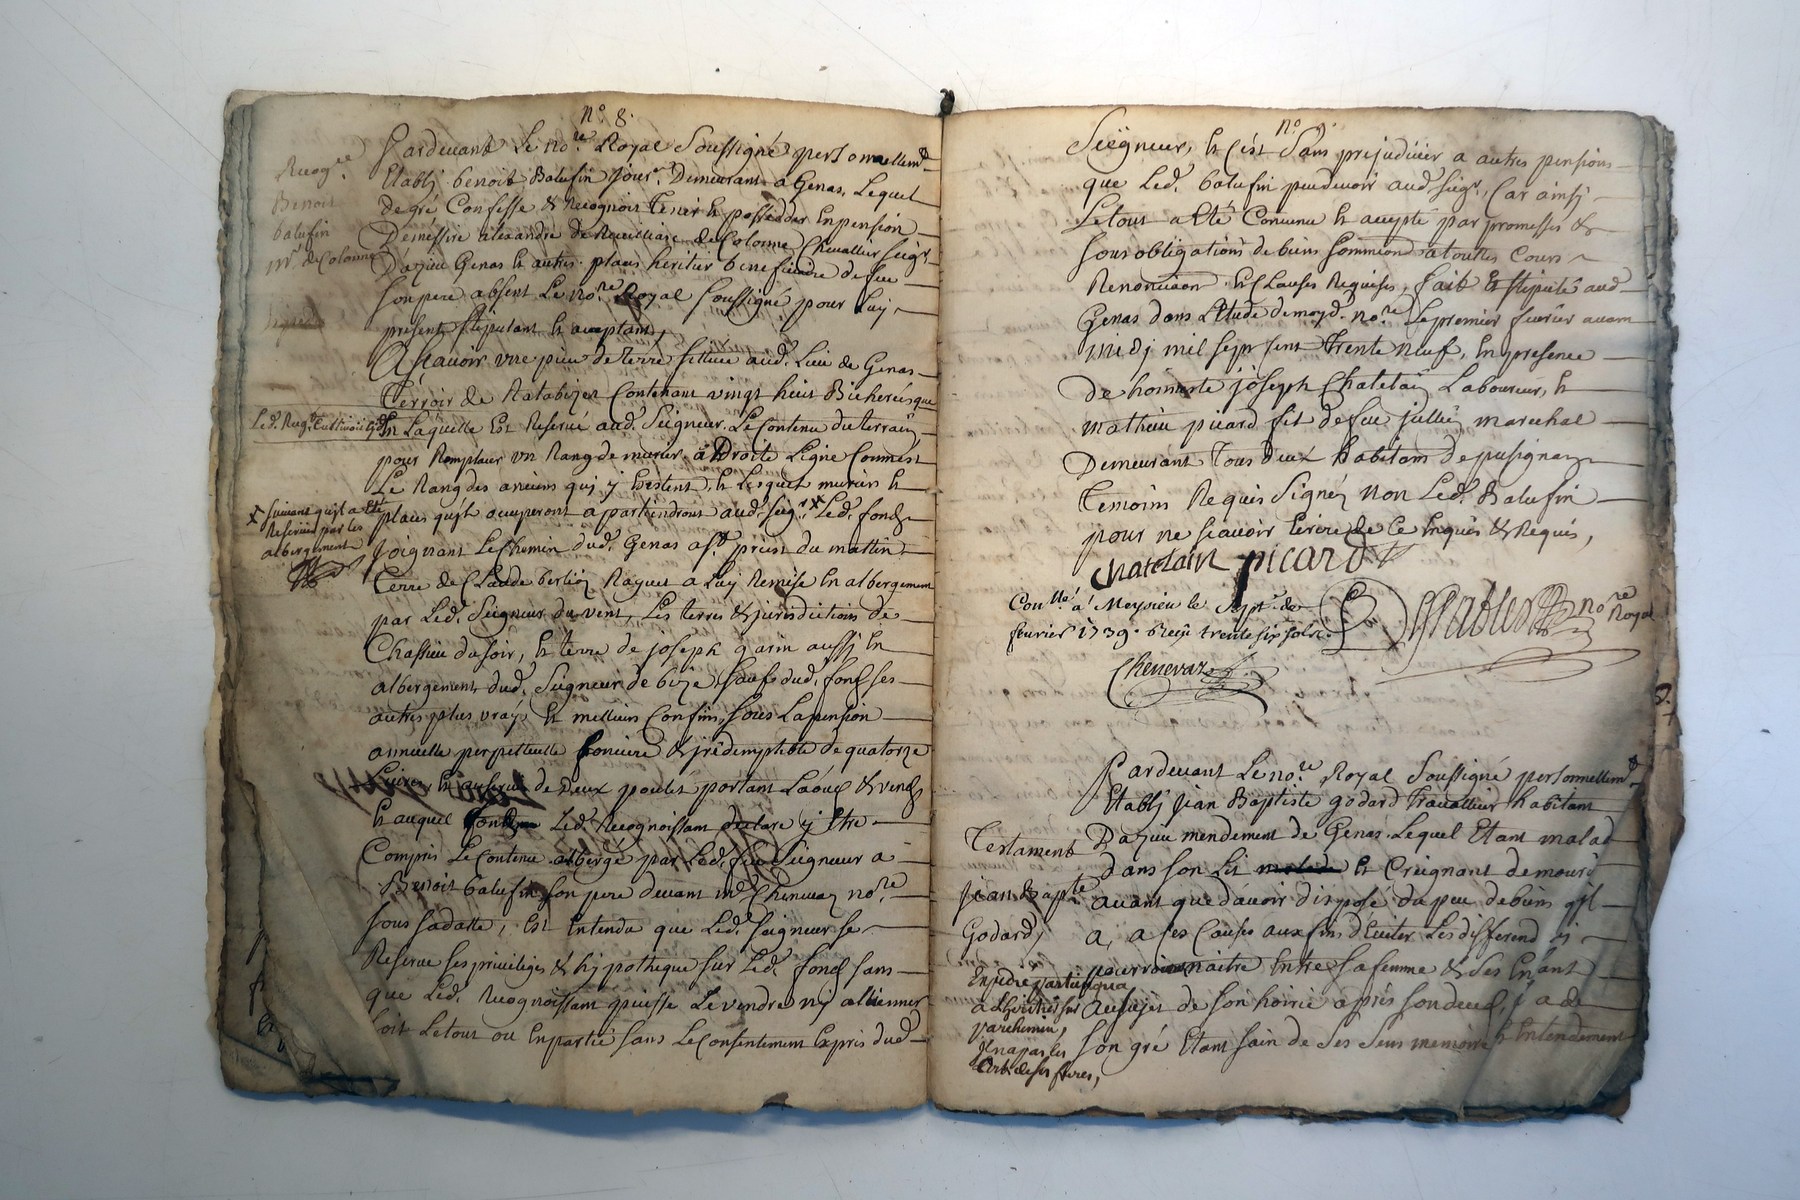 n.º 8.
Recog.ce
Benoit
balufin
m.r de Colonne
Pardevant Le no.re Royal Soussigné personnellem.t
Etablj benoit Balufin jour.r Demeurant a Genas, Lequel
de gré Confesse & Recognoit Tenir et posseder En pension
De messire alexandre de Colonne Chevallier seig.r
Dazieu Genas et autres places heritier beneficiaire de feu
son pere absent Le no.re Royal soussigné pour Luy
present stipulant et acceptant,
Ascavoir une piece de terre sittuee aud. Lieu de Genas
Terroir de Ratabizen Contenant vingt huit Bicherées que
En Laquelle Est Reservé aud. Seigneur Le Contenu du terrain
pour Remplacer un Rang de murier a Droite Ligne Comme st
Le Rang des anciens quj y Existent, et Lesquel muriers et
places qu'ils occuperont apartiendront aud. seig.r X Led. fond
X suivant qu'il a eté
Reservée par les
albergement
joignant Le Chemin dud. Genas a priest du mattin
Terre de Claude berlioz Raquet a Luy Remise En albergement
par Led. Seigneur du vent, Les terres & jurisdictions de
Chassieu du soir, et terre de joseph garin aussj En
albergement dud. Seigneur de bize, sauf dud. fond ses
autres plus vray et meilleurs Confins, sous La pension
annuelle perpettuelle fonciere & jrrédemptible de quatorze
Livres, et de Deux poulet portant Laoux & vends
Et auquel Led. Recognoissant declare y Etre
Compris Le Contenu albergé par Led. feu Seigneur a
Benoit balufin son pere devant m.e Chenevaz no.re
sous sa datte, Est Entendu que Led. seigneur se
Reserve ses privileges & hjpotheque sur Led. fond sans
que Led. Recognoissant puisse Le vendre ny alliener
soit Le tout ou En partie sans Le Consentement Expres dud.
n.º
Seigneur, et c'est Sans prejudicier a autres pensions
que Led. balufin peut devoir aud. seig.r, Car ainsj
Le tout a Eté Convenu et accepté par promesses &
sous obligations de biens soummiond a toutes Cours
Renonciaon et Clauses Requises, fait et stipulé aud.
Genas dans L'Etude de moyd. no.re Le premier fevrier avam
midj mil sept sent trente neuf, En presence
de honneste joseph Chatelain Laboureur, et
mathieu picard fils de feu jullien marechal
Demeurant Tous deux habitans de pusignan
Temoins Requis Signez Non Led. Balufin
pour ne scavoir Ecrire de Ce Enquis & Requis,
Chatelain picard
Con.llé a Meyzieu le sept.e de
fevrier 1739. Reçu trente six sols.
no.re Royal
Chenevaz
Pardevant Le no.re Royal Soussigné personnellem.t
Etablj jean Baptiste godard travallieur habitant
Testament
Dazieu mendement de Genas. Lequel Etant malad
dans son Lit et Creignant de mourir
jean Bapte
avant que d'avoir disposé du peu de biens qjl
Godard,
a, a ses Causes aux fins d'Eviter Les different qj
pourroit naitre Entre sa femme & Ses Enfant
au sujet de son hoirie après son deced, j'a de
parchemin,
son gré Etant sain de Ses Sens memoire et Entendement